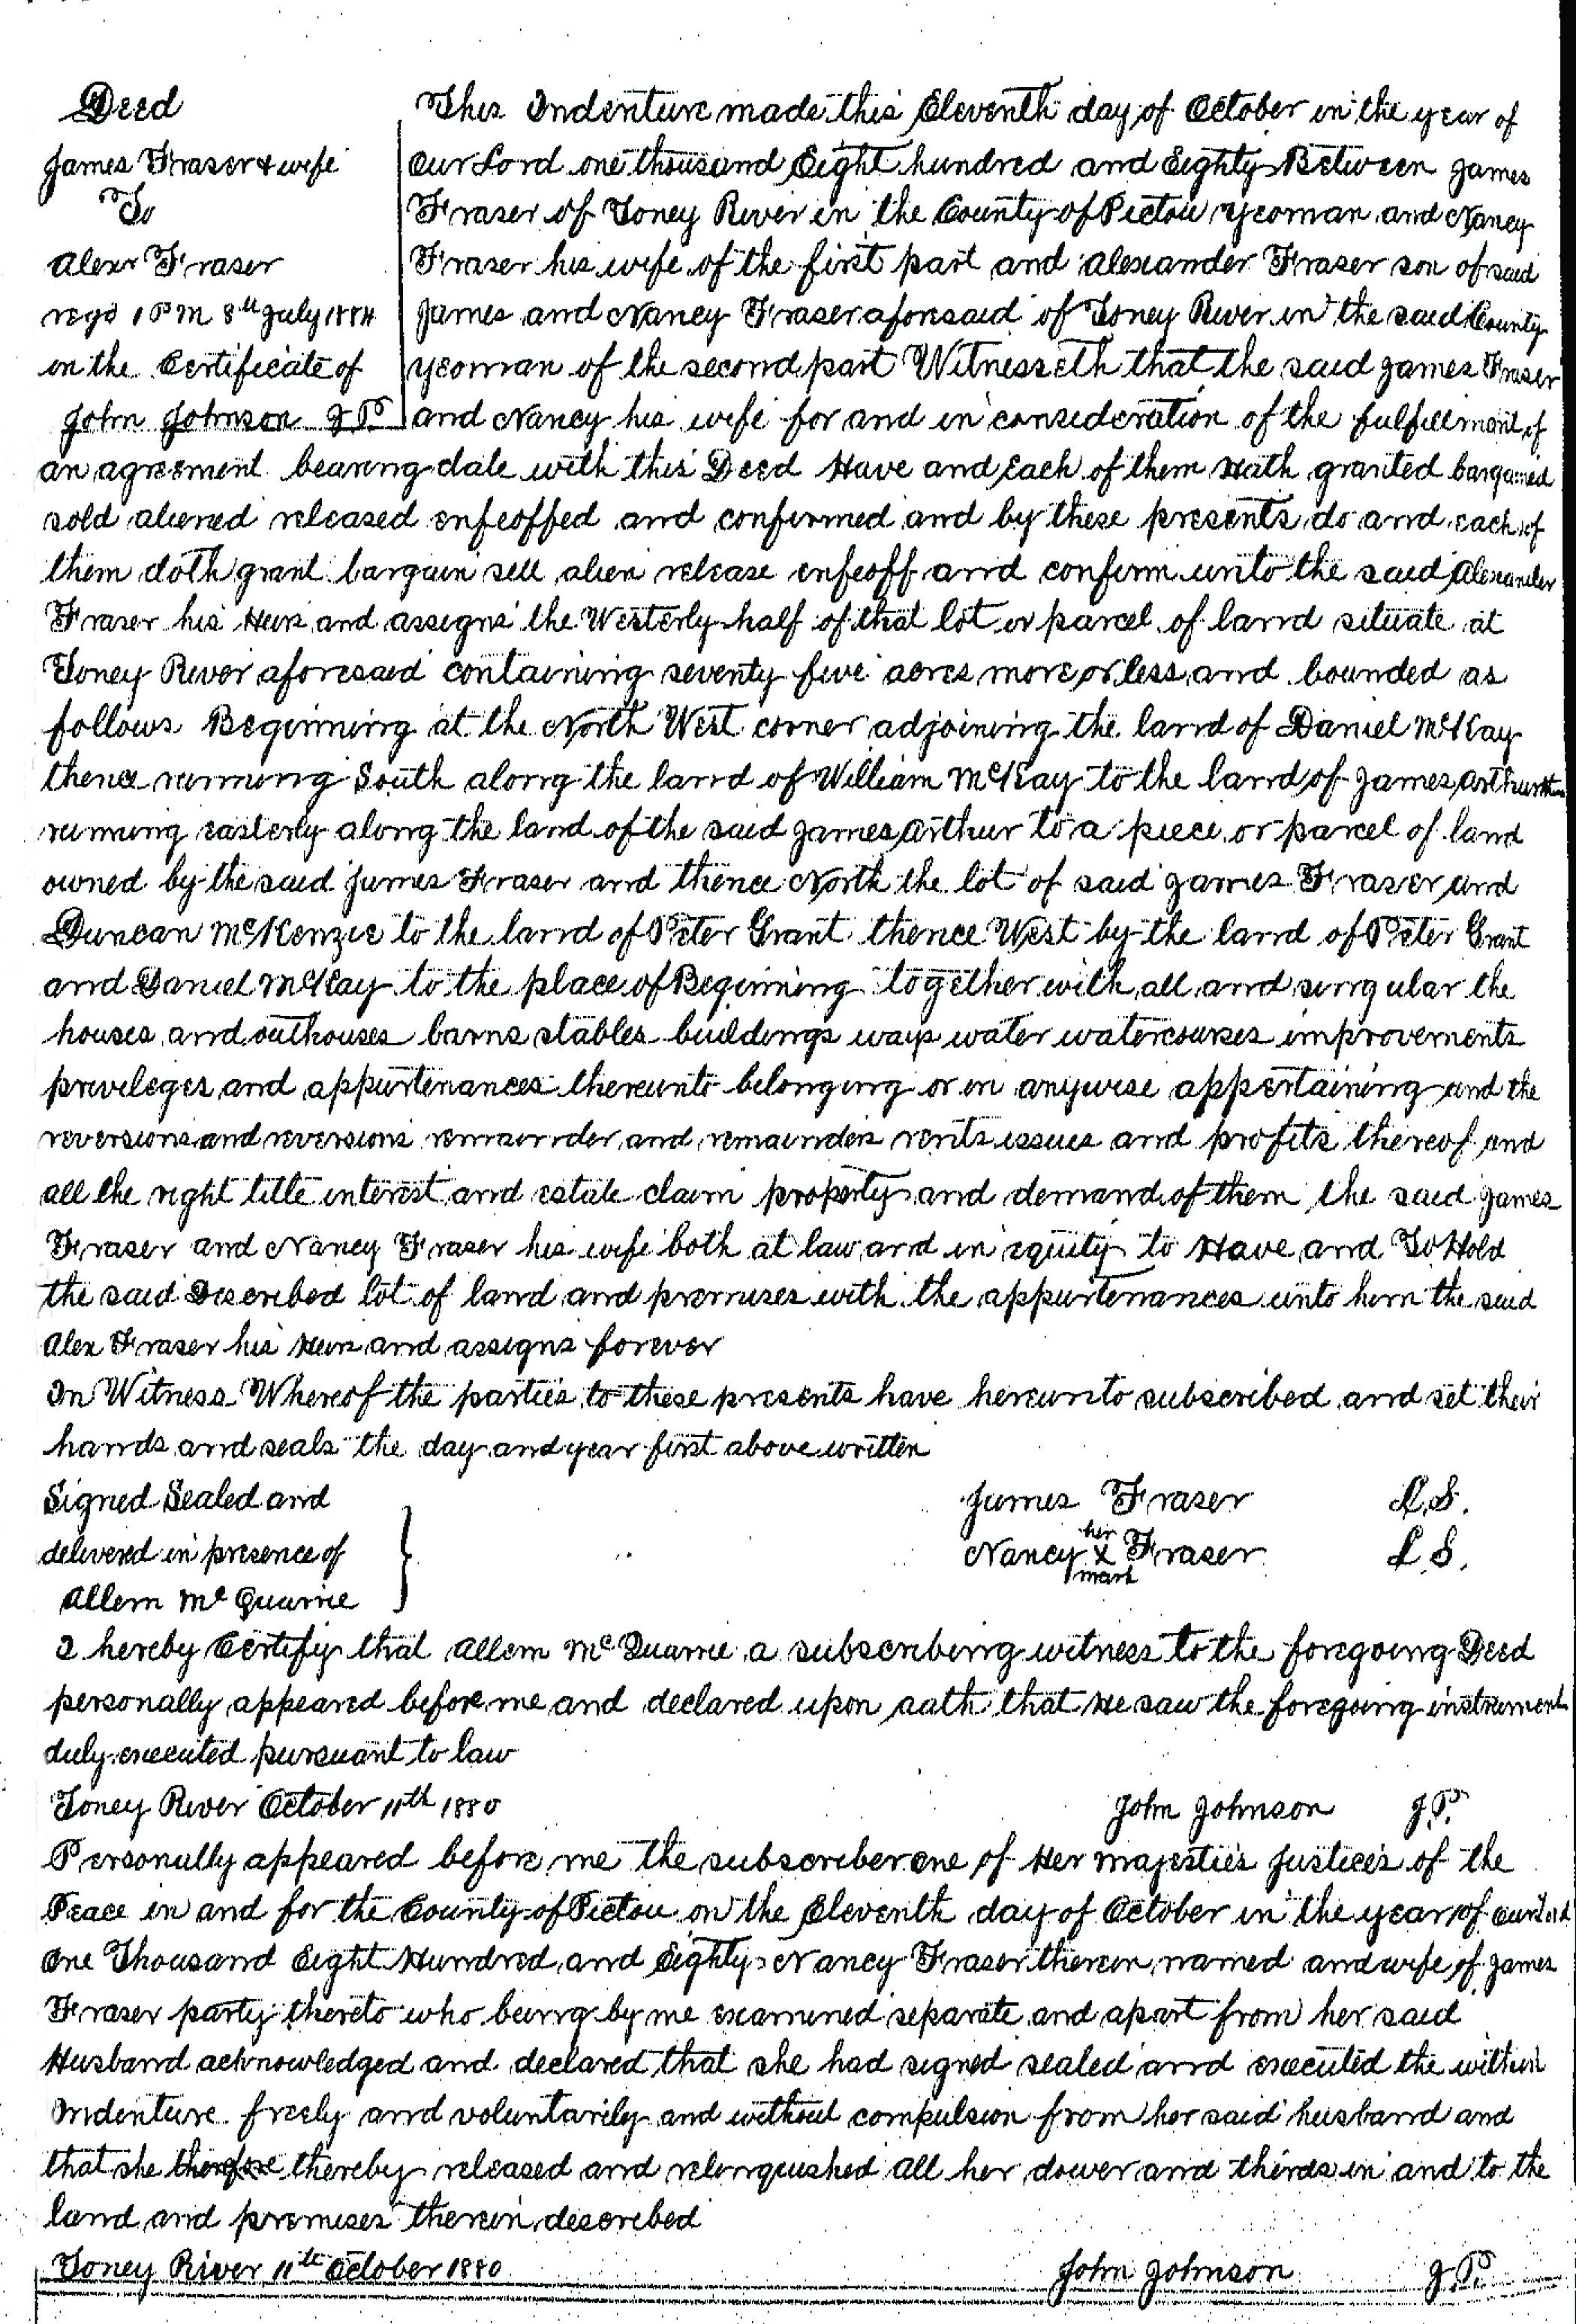 Deed
James Fraser & wife
To
Alexr Fraser
regd 1 PM 8th July 1884
on the Certificate of
John Johnson J.P.
This Indenture made this Eleventh day of October in the year of
Our Lord one thousand Eight hundred and Eighty Between James
Fraser of Toney River in the County of Pictou yeoman and Nancy
Fraser his wife of the first part and Alexander Fraser son of said
James and Nancy Fraser aforesaid of Toney River in the said County
yeoman of the second part Witnesseth that the said James Fraser
and Nancy his wife for and in consideration of the fulfillment of
an agreement bearing date with this Deed Have and Each of them Hath granted bargained
sold aliened released enfeoffed and confirmed and by these presents do and each of
them doth grant bargain sell alien release enfeoff and confirm unto the said Alexander
Fraser his Heirs and assigns the Westerly half of that lot or parcel of land situate at
Toney River aforesaid containing seventy five acres more or less and bounded as
follows Beginning at the North West corner adjoining the land of Daniel McKay
thence running South along the land of William McKay to the land of James Arthur
running easterly along the land of the said James Arthur to a piece or parcel of land
owned by the said James Fraser and thence North the lot of said James Fraser and
Duncan McKenzie to the land of Peter Grant thence West by the land of Peter Grant
and Daniel McKay to the place of Beginning together with all and singular the
houses and outhouses barns stables buildings ways water watercourses improvements
privileges and appurtenances thereunto belonging or in anywise appertaining and the
reversions and reversions remainder and remainders rents issues and profits thereof and
all the right title interest and estate claim property and demand of them the said James
Fraser and Nancy Fraser his wife both at law and in equity to Have and To Hold
the said Described lot of land and premises with the appurtenances unto him the said
Alex Fraser his Heirs and assigns forever
In Witness Whereof the parties to these presents have hereunto subscribed and set their
hands and seals the day and year first above written
Signed Sealed and
delivered in presence of
Allem McQuarrie
James Fraser L.S.
her
Nancy X Fraser L.S.
mark
I hereby Certify that Allem McQuarrie a subscribing witness to the foregoing Deed
personally appeared before me and declared upon oath that He saw the foregoing instrument
duly executed pursuant to law
Toney River October 11th 1880 John Johnson J.P.
Personally appeared before me the subscriber one of Her Majesties Justices of the
Peace in and for the County of Pictou on the Eleventh day of October in the year of our Lord
One Thousand Eight Hundred and Eighty Nancy Fraser therein named and wife of James
Fraser party thereto who being by me examined separate and apart from her said
Husband acknowledged and declared that she had signed sealed and executed the within
Indenture freely and voluntarily and without compulsion from her said husband and
that she thereby released and relinquished all her dower and thirds in and to the
land and premises therein described
Toney River 11th October 1880 John Johnson J.P.